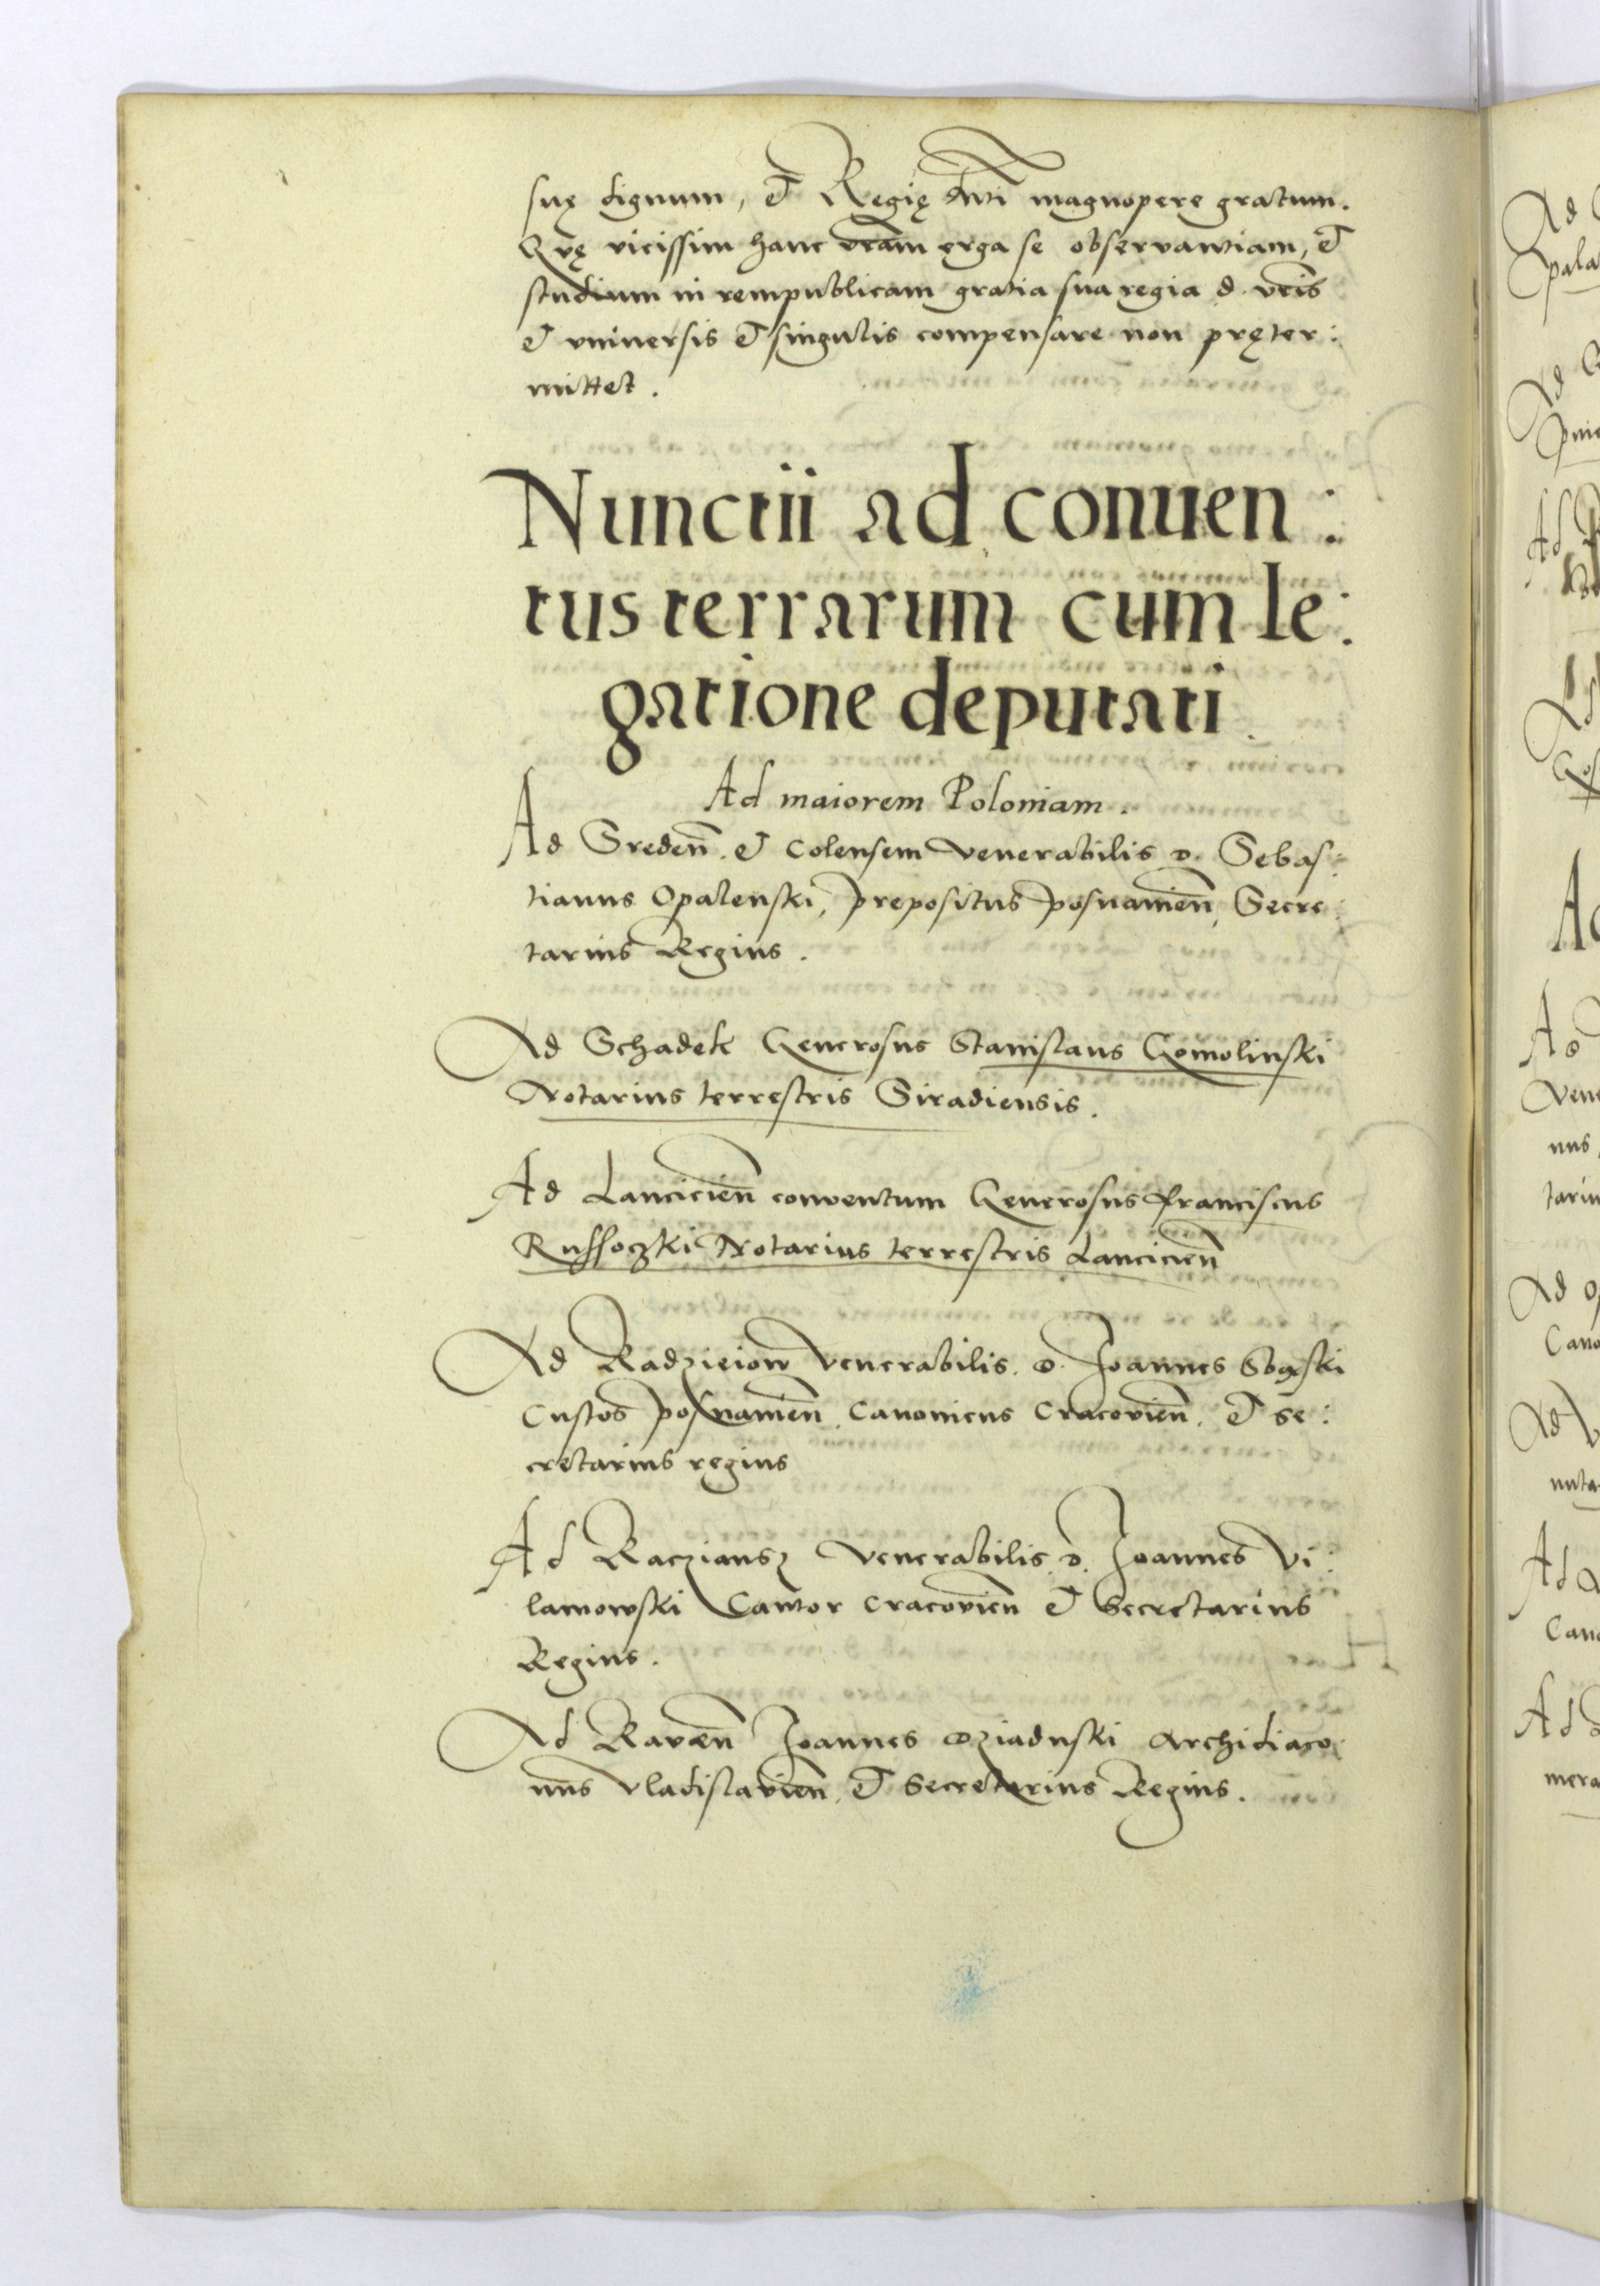 suę dignum, et Regię Mti magnopere gratum.
Quę vicissim hanc vram erga se observantiam, et
studium in rempublicam gratia sua regia d. vris
et vniversis et singulis compensare non pręter:
mittet.
Nunctii ad conuen:
tus terrarum cum le:
gatione deputati.
Ad maiorem Poloniam.
Ad Sreden. et Colensem Venerabilis D. Sebas:
tianus Opalenski, prepositus posnanien, Secre:
tarius Regius.
Ad Schadek Generosus Stanislaus Gomolinski
Notarius terrestris Siradiensis.
Ad Lancicien conventum Generosus franciscus
Russoczki Notarius terrestris Lancicien
Ad Radzieiow Venerabilis. D. Joannes Sbąski
Custos posnanien, Canonicus Cracovien. et Se:
cretarius regius
Ad Racziansz Venerabilis. D. Joannes Vi:
lamowski Cantor Cracovien et Secretarius
Regius.
Ad Raven Joannes Dziaduski Archidiaco:
nus Vladislavien, et Secretarius Regius.
Ad
pala
Ad
Ad
Ad
Vene
nus
tariu
Ad op
Cano
Ad
nota
Ad
Cano
Ad
mera